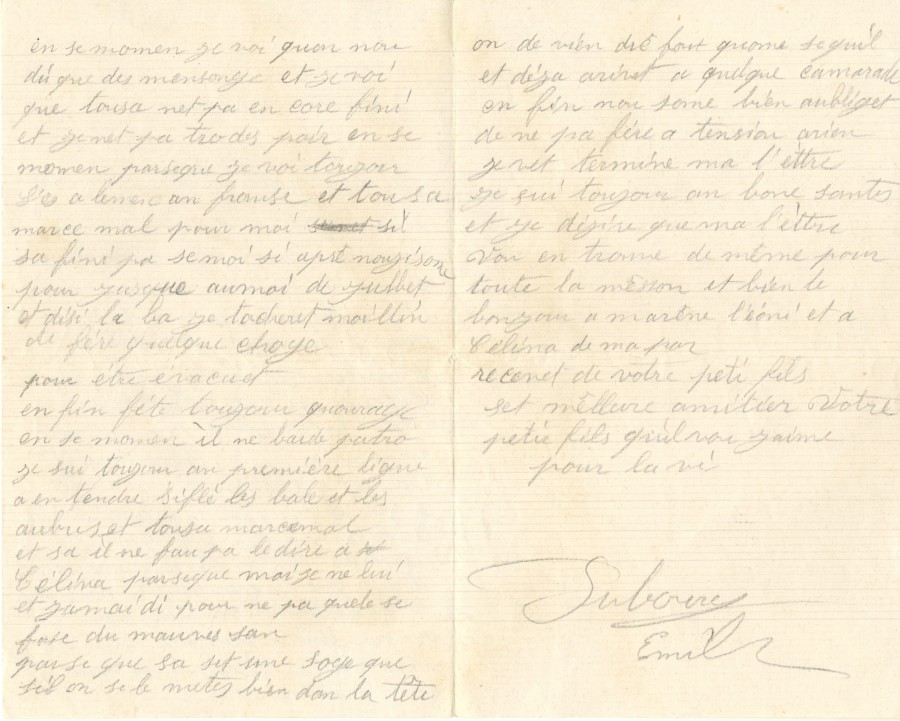 en se momen ze voi quon nou
du que des mensonze et ze voi
que tousa net pa en core fini
et ze net pa tro des poir en se
momen parseque ze voi touzour
a lenec an franse et tousa
marce mal pour moi si
sa fini pa se moi si apré nouzisome
pour zusque aumoi de zulliet
et disi la ba ze tacheret
de fére quelque choze
pour étre évacuet
en fin féte touzour quouraze
en se momen il ne barde patro
ze sui touzour an premiére ligne
a en tendre siflé les bale et les
aubus et tousa marcemal
et sa il ne fau pa ledire a
Célina parseque moi ze ne lui
et zamai di pour ne pa quele se
fase du mauves san
parse que sa set une soze que
sil on se le metes bien dan la tête
on de vien dré fout quome sequil
et déza arivet a quelque camarade
en fin nou some bien aubliget
de ne pa fére a tension arien
ze vet terminé ma l'éttre
ze sui touzour an bone santes
et ze désire que ma l'éttre
vou en trouve de méme pour
toute la méson et bien le
bonzour a marène léoni et a
Célina de ma par
recevet de votre peti fils
set mélleure amitier Votre
petie fils quil vou zaime
pour la vi
Emil